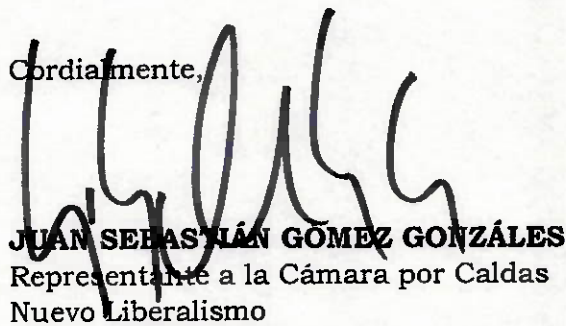 Cordialmente,
JUAN SEBASTIÁN GÓMEZ GONZÁLES
Representante a la Cámara por Caldas
Nuevo Liberalismo